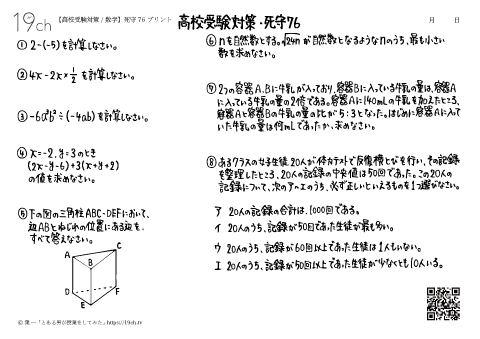 19ch
【高校受験対策/数学】死守76 プリント
高校受験対策・死守76
月　　日
① 2-(-5)を計算しなさい。
② 4x-2x×1/2 を計算しなさい。
③ -6a³b²÷(-4ab)を計算しなさい。
④ x=-2, y=3のとき
(2x-y-6)+3(x+y+2)
の値を求めなさい。
⑤ 下の図の三角柱ABC-DEFにおいて、
辺ABとねじれの位置にある辺を、
すべて答えなさい。
A
B
C
D
E
F
⑥ nを自然数とする。√24nが自然数となるようなnのうち、最も小さい
数を求めなさい。
⑦ 2つの容器A、Bに牛乳が入っており、容器Bに入っている牛乳の量は、容器A
に入っている牛乳の量の2倍である。容器Aに140mLの牛乳を加えたところ、
容器Aと容器Bの牛乳の量の比が5:3となった。はじめに容器Aに入って
いた牛乳の量は何mLであったか、求めなさい。
⑧ あるクラスの女子生徒20人が体力テストで反復横とびを行い、その記録
を整理したところ、20人の記録の中央値は50回であった。この20人の
記録について、次のア〜エのうち、必ず正しいといえるものを1つ選びなさい。
ア 20人の記録の合計は、1000回である。
イ 20人のうち、記録が50回であった生徒が最も多い。
ウ 20人のうち、記録が60回以上であった生徒は1人もいない。
エ 20人のうち、記録が50回以上であった生徒が少なくとも10人いる。
© 葉一「とある男が授業をしてみた」 https://19ch.tv